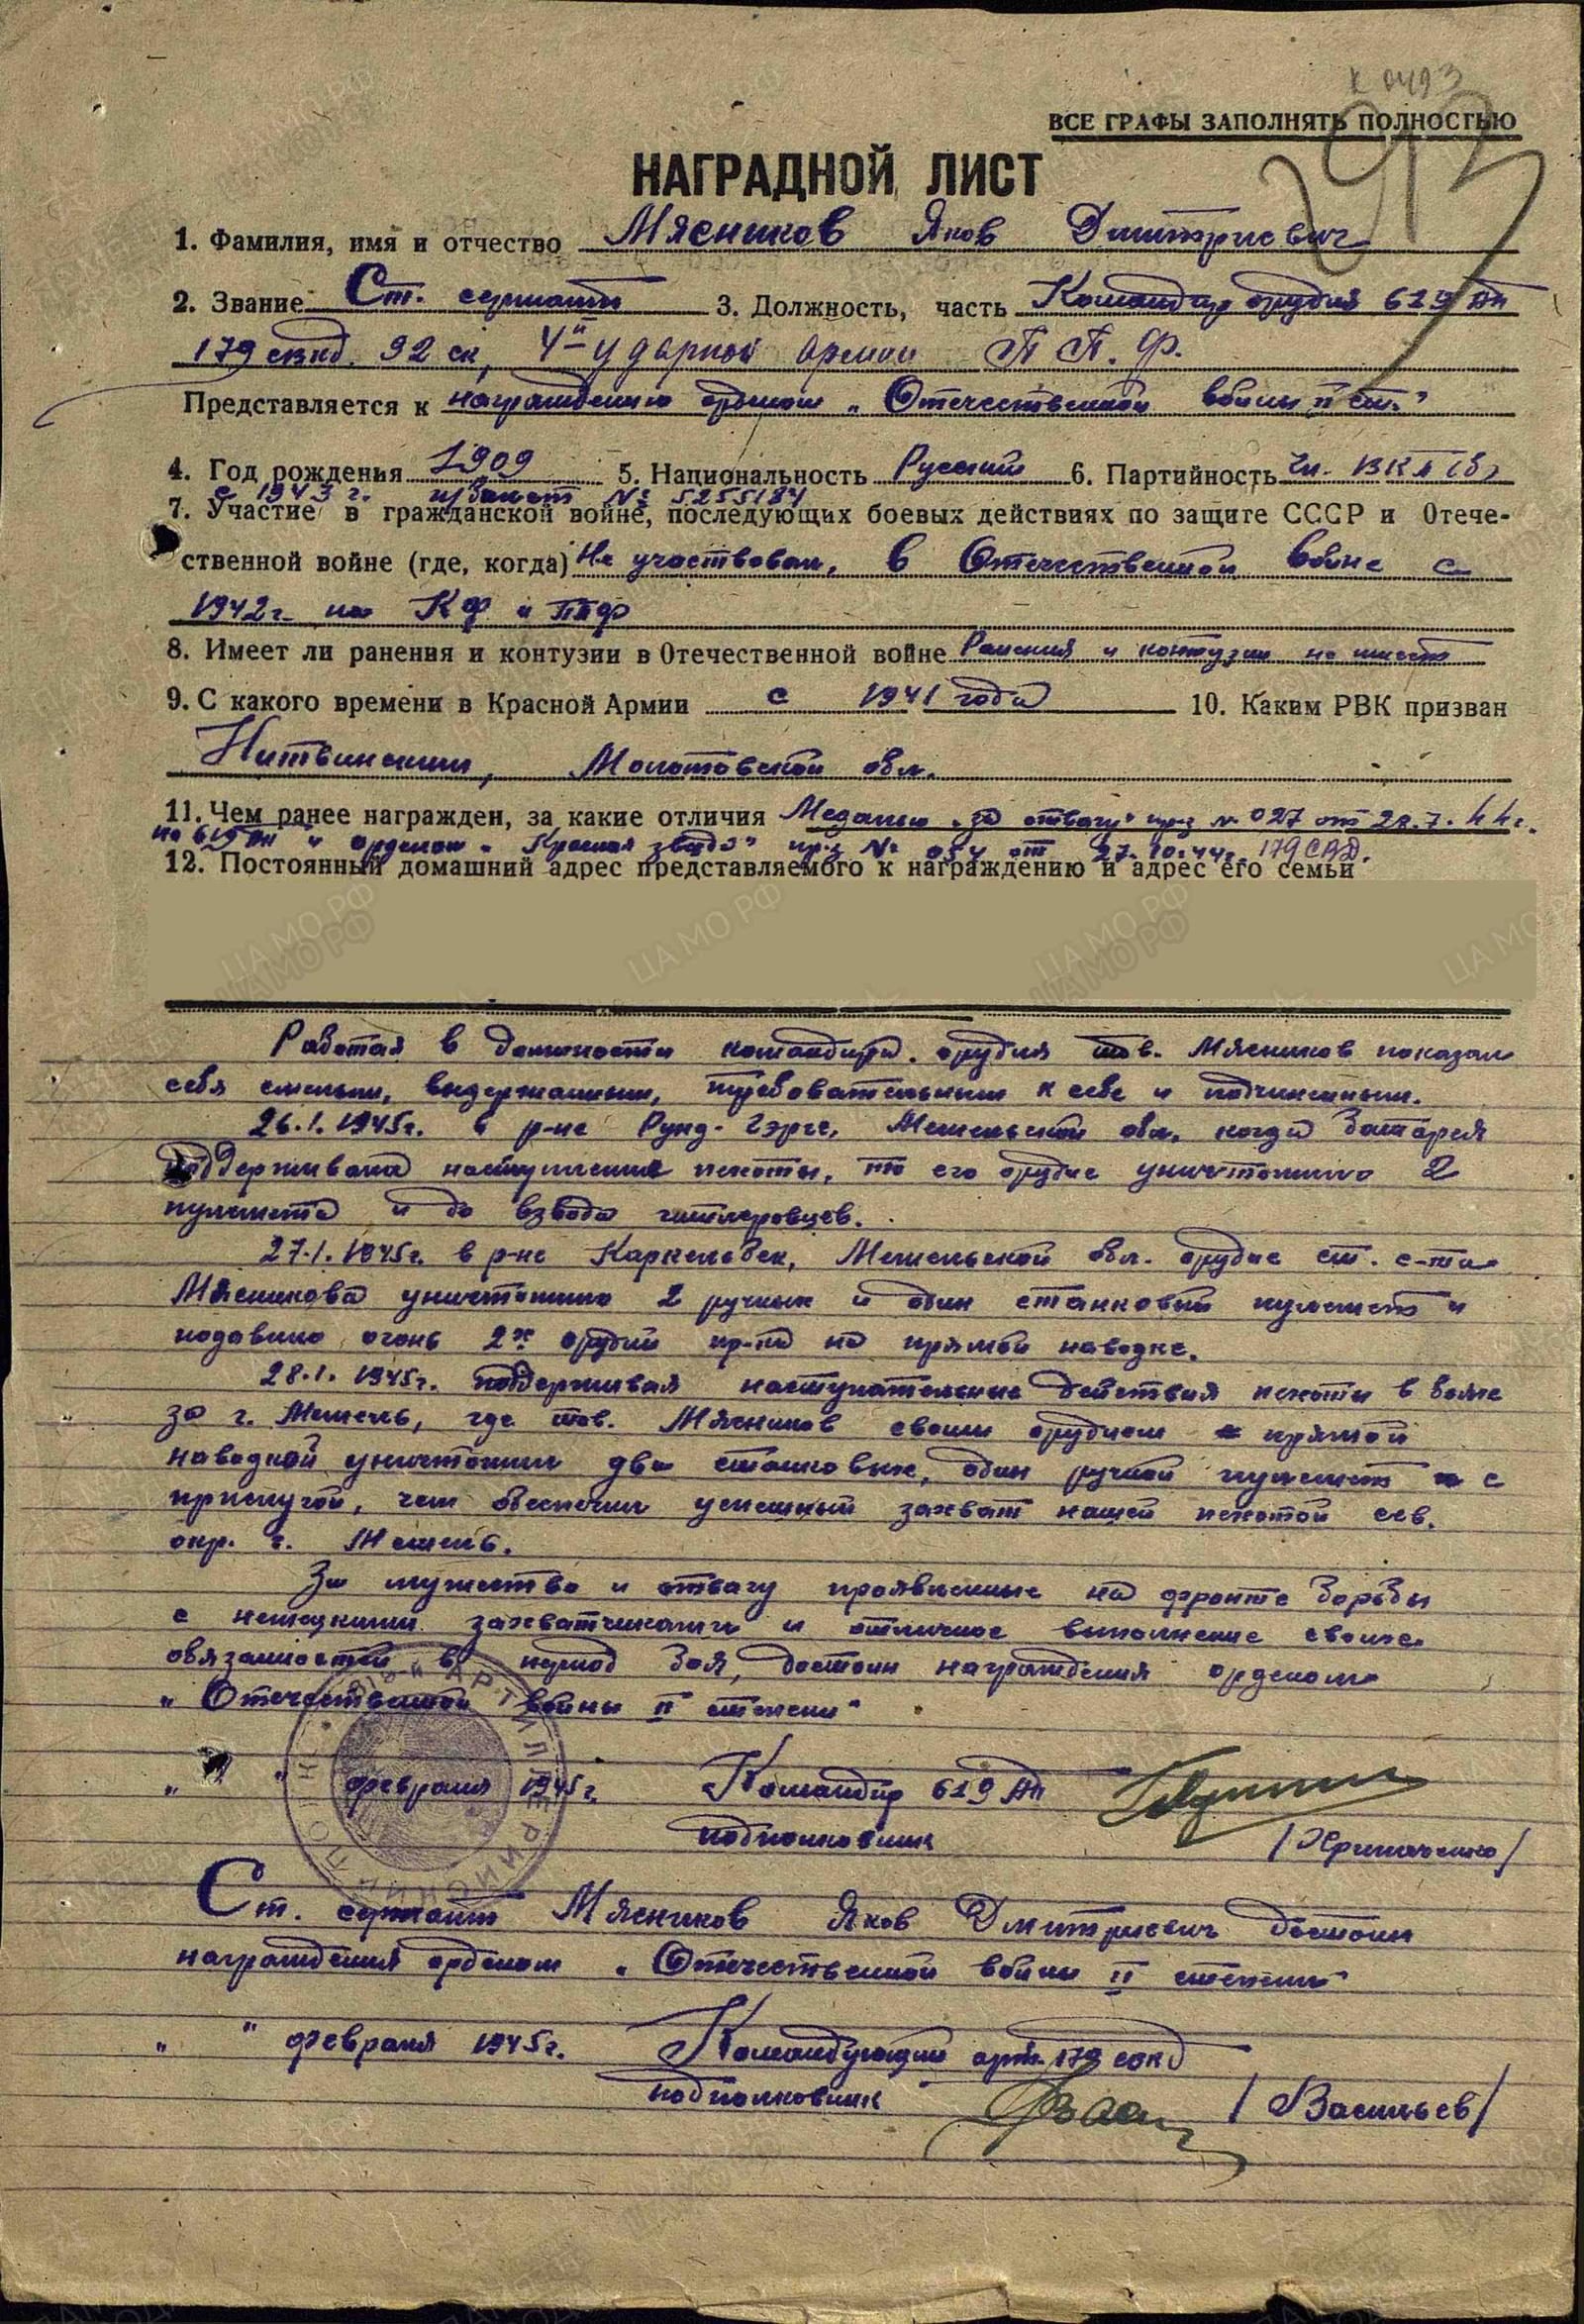 К 0493
ВСЕ ГРАФЫ ЗАПОЛНЯТЬ ПОЛНОСТЬЮ
НАГРАДНОЙ ЛИСТ
1. Фамилия, имя и отчество Мясников Яков Дмитриевич
2. Звание Ст. сержант 3. Должность, часть Командир орудия 619 Ап
179 сккд, 92 ск, 4й ударной армии П П. Ф.
Представляется к награждению орденом „Отечественной войны II ст."
4. Год рождения 1909 5. Национальность Русский 6. Партийность Чл. ВКП(б)
с 1943 г. п/билет № 5255184
7. Участие в гражданской войне, последующих боевых действиях по защите СССР и Отече-
ственной войне (где, когда) Не участвовал, в Отечественной войне с
1942г. на КФ и ППФ
8. Имеет ли ранения и контузии в Отечественной войне Ранения и контузии не имеет
9. С какого времени в Красной Армии с 1941 года 10. Каким РВК призван
Нытвинским, Молотовской обл.
11. Чем ранее награжден, за какие отличия Медалью „за отвагу" пр-з № 027 от 20.7.44г.
по 619 Ап и орденом „Красная звезда" пр-з № 054 от 27.10.44г. 179 СКД.
12. Постоянный домашний адрес представляемого к награждению и адрес его семьи
Работая в должности командира орудия тов. Мясников показал
себя смелым, выдержанным, требовательным к себе и подчиненным.
26.1.1945г. в р-не Рунд-Гэрге, Мемельской обл, когда батарея
поддерживала наступление пехоты, то его орудие уничтожило 2
пулемета и до взвода гитлеровцев.
27.1.1945г. в р-не Каркельбек, Мемельской обл. орудие ст. с-та
Мясникова уничтожило 2 ручных и один станковый пулемет и
подавило огонь 2х орудий пр-ка на прямой наводке.
28.1.1945г. поддерживая наступательные действия пехоты в боях
за г. Мемель, где тов. Мясников своим орудием прямой
наводкой уничтожил два станковых, один ручной пулемет с
прислугой, чем обеспечил успешный захват нашей пехотой сев.
окр. г. Мемель.
За мужество и отвагу проявленные на фронте борьбы
с немецкими захватчиками и отличное выполнение своих
обязанностей в период боя, достоин награждения орденом
„Отечественной войны II степени"
„ " февраля 1945г. Командир 619 Ап
подполковник
Ст. сержант Мясников Яков Дмитриевич достоин
награждения орденом „Отечественной войны II степени"
„ " февраля 1945г. Командующий арт. 179 сккд
подполковник /Васильев/
ЦАМО РФ